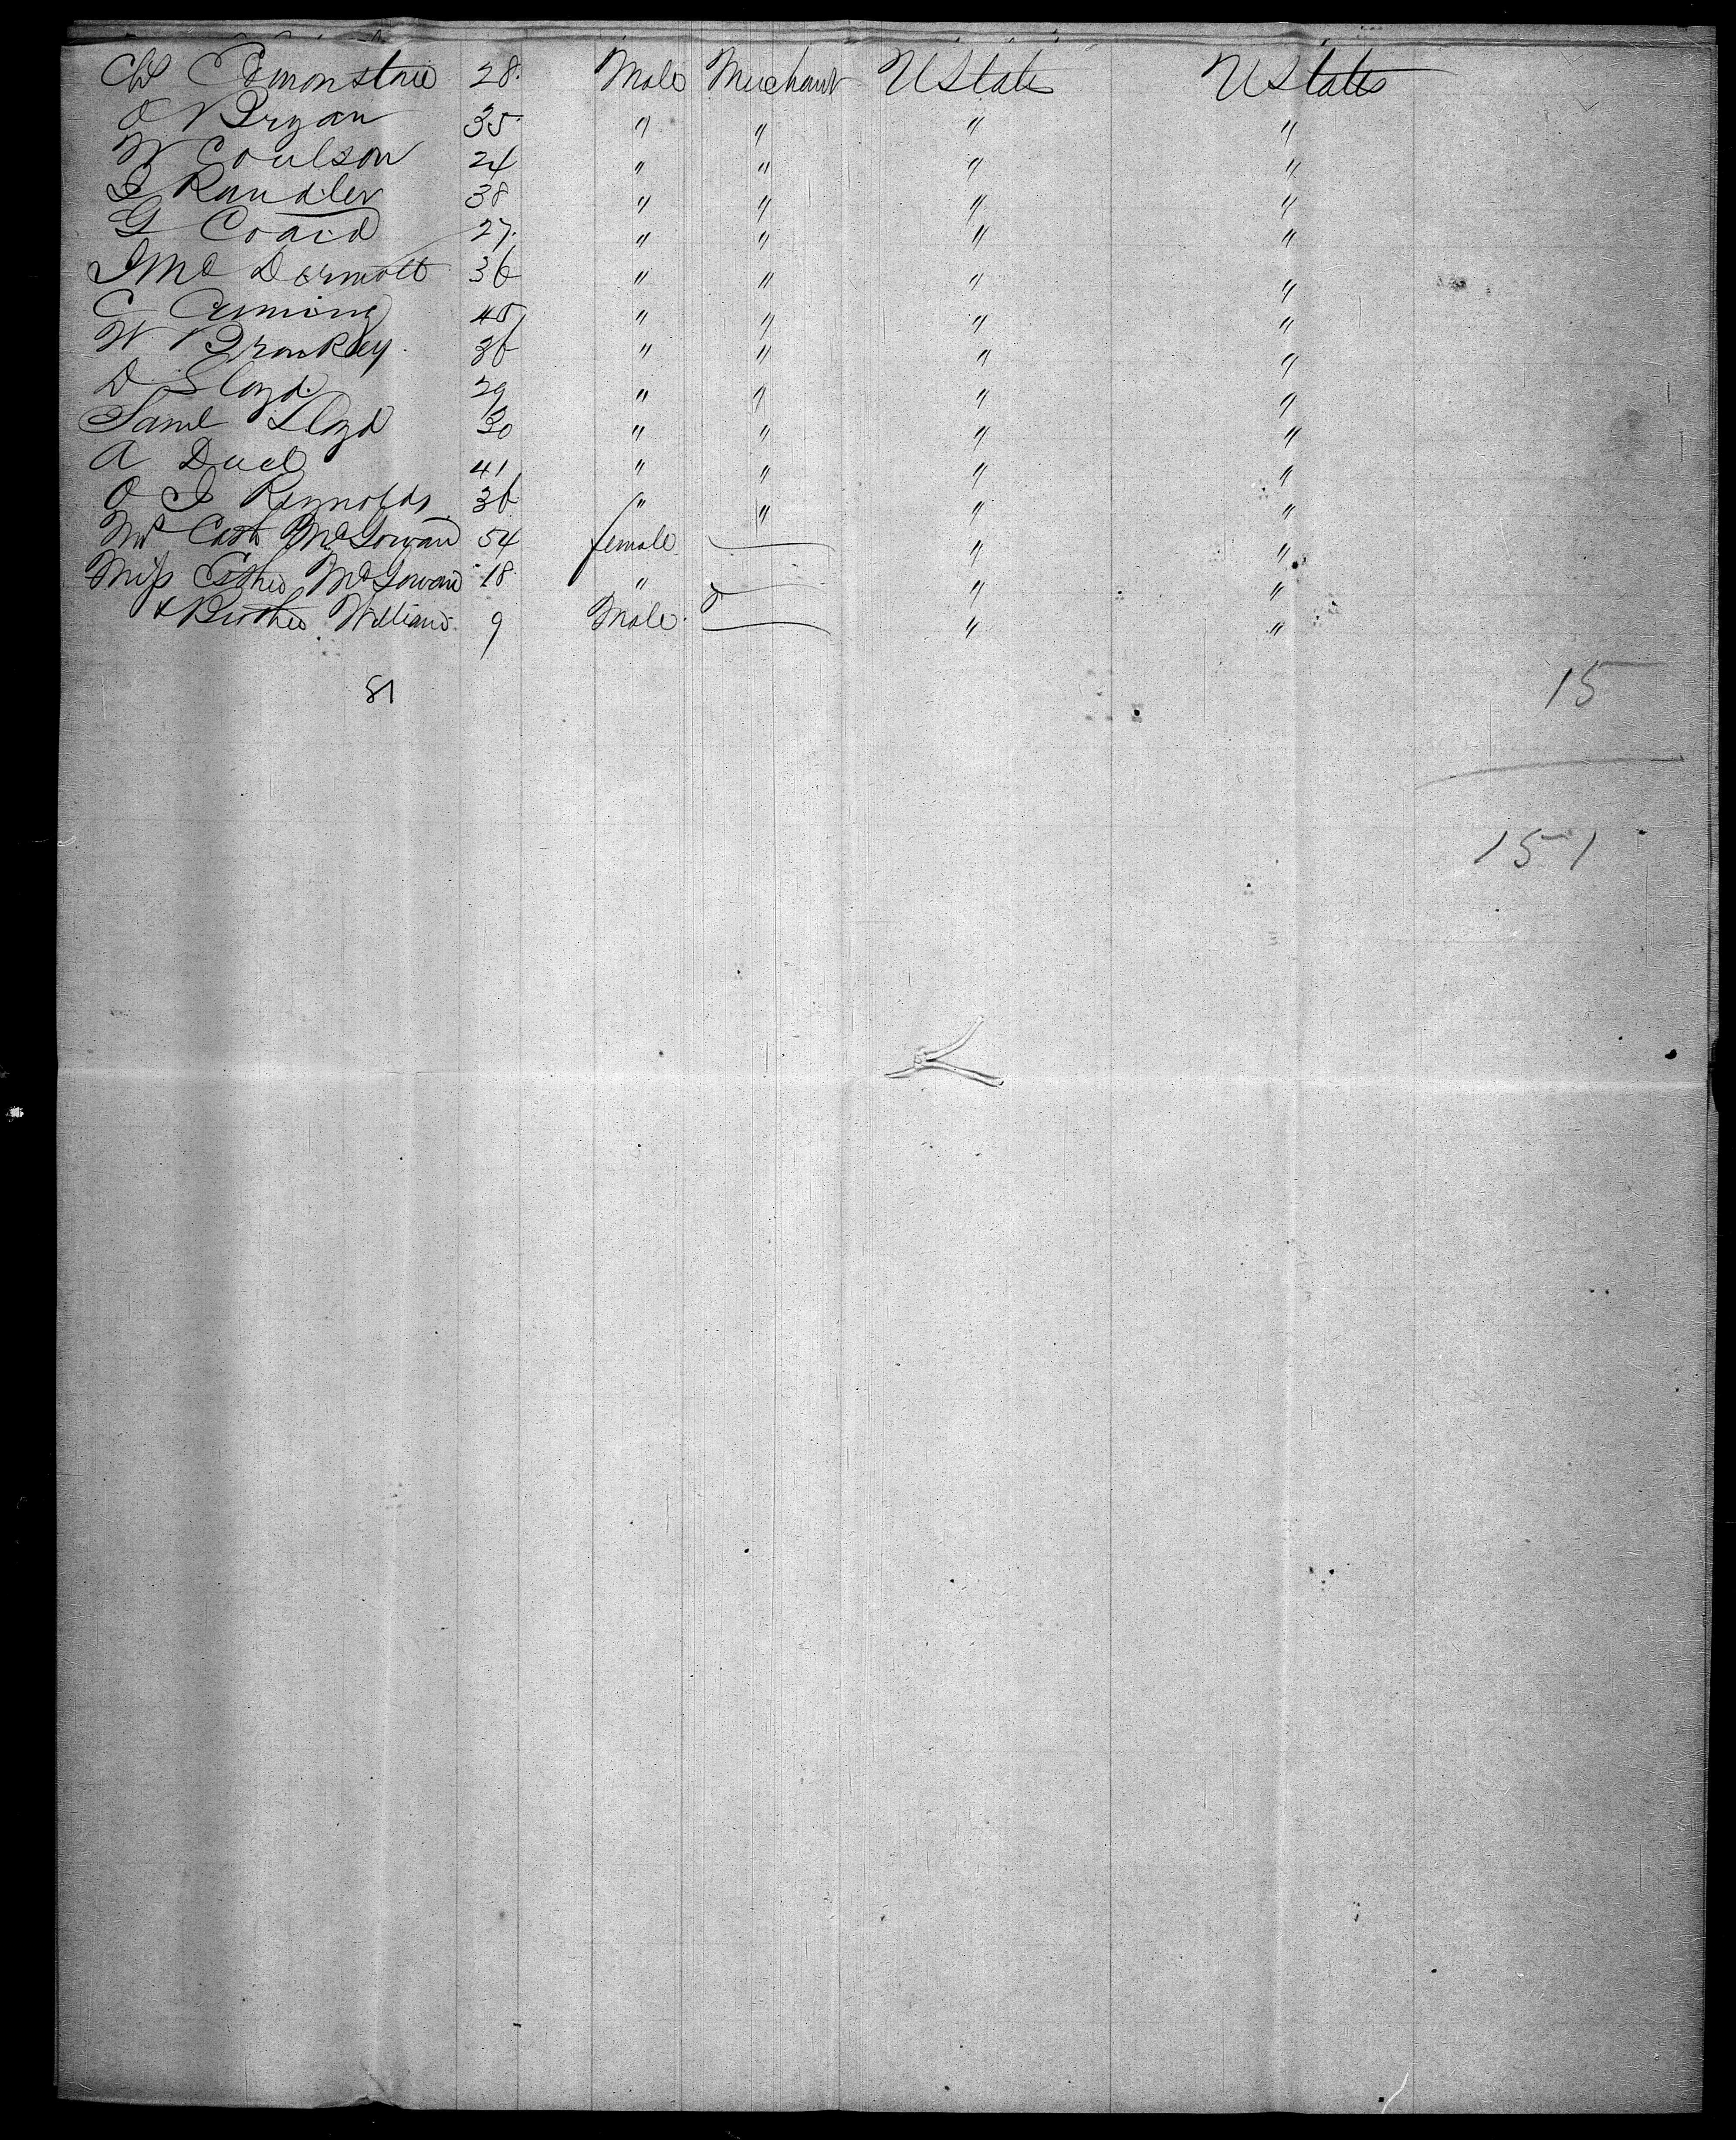 Ch Edmonstone 28 Male Merchant U States U States
O Bryan 35 " " " "
W Coulson 24 " " " "
I Randler 38 " " " "
G Coaid 27 " " " "
J Mc Dermott 36 " " " "
C Cuming 45 " " " "
W 36 " " " "
D Lloyd 29 " " " "
Saml Lloyd 30 " " " "
A Duel 41 " " " "
O J Reynolds 36 " " " "
Mrs Cath McGowan 54 female — " "
Miss Esther McGowan 18 " — " "
& Brother William 9 Male — " "
81
15
151